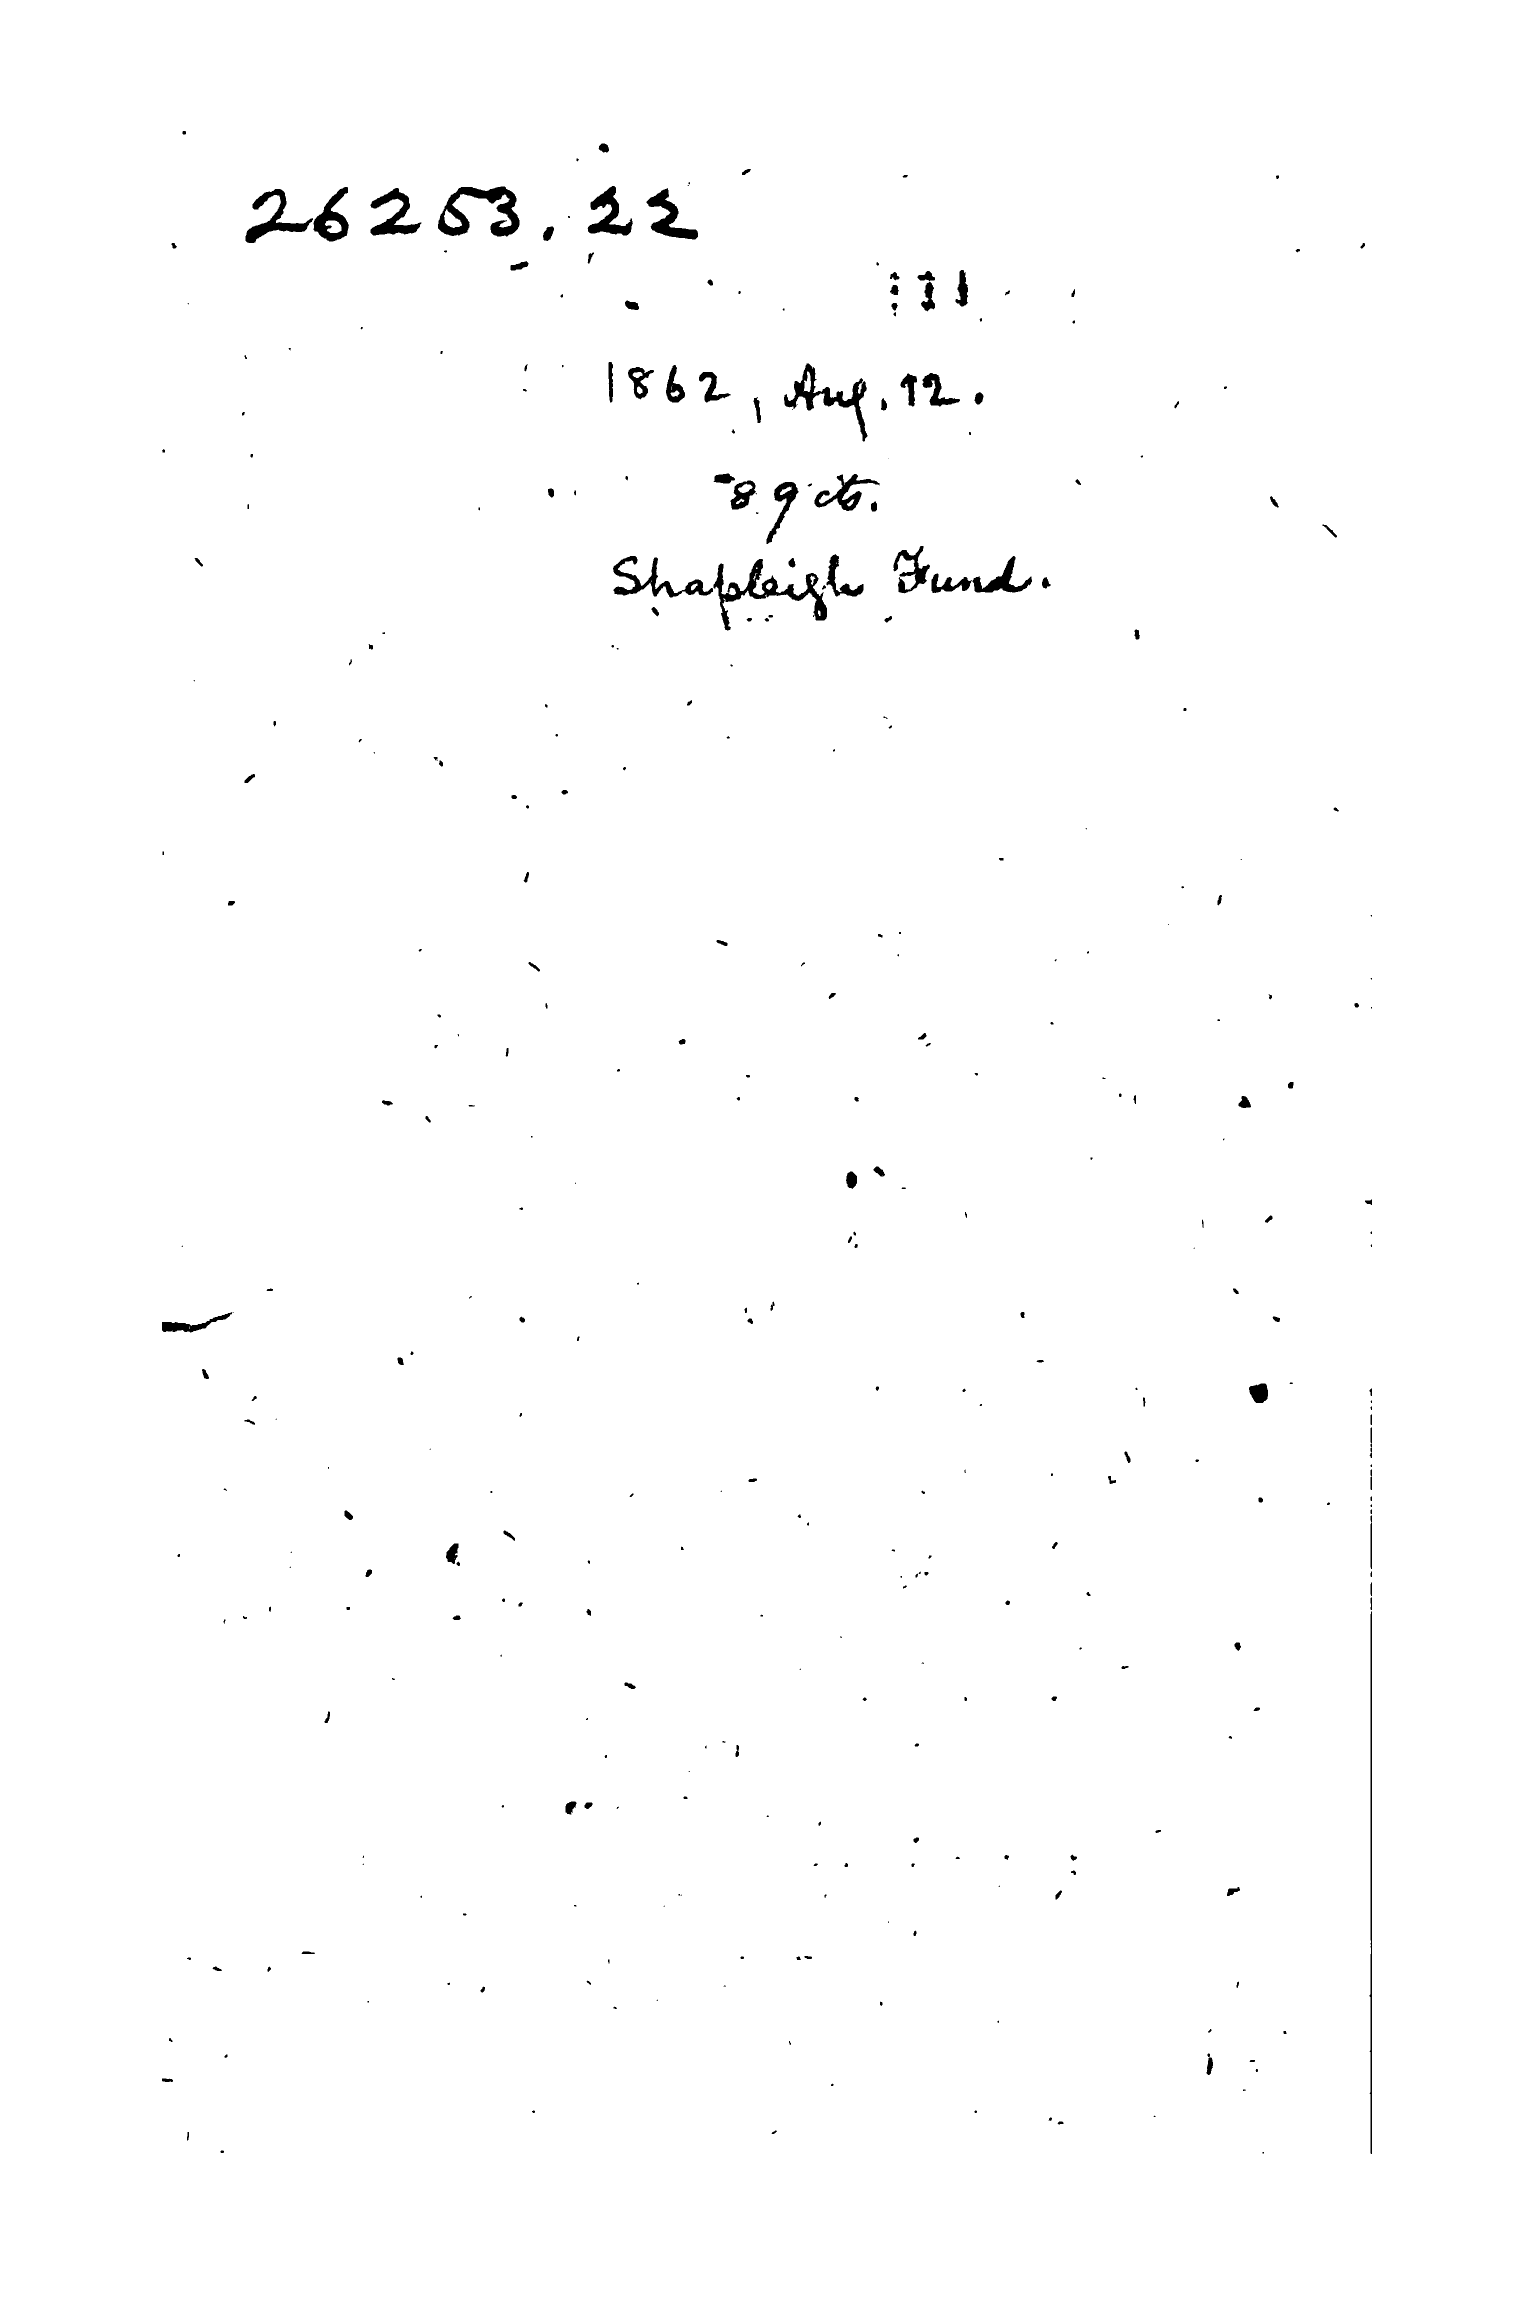 26253.22
1862, Aug. 12.
89 cts.
Shapleigh Fund.